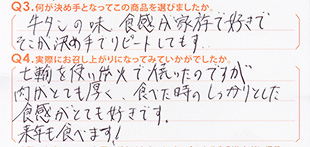 Q3.何が決め手となってこの商品を選びましたか。
牛タンの味、食感が家族で好きで
そこが決め手でリピートしてます。
Q4.実際にお召し上がりになってみていかがでしたか。
七輪を使い炭火で焼いたのですが
肉がとても厚く、食べた時のしっかりとした
食感がとても好きです。
来年も食べます!